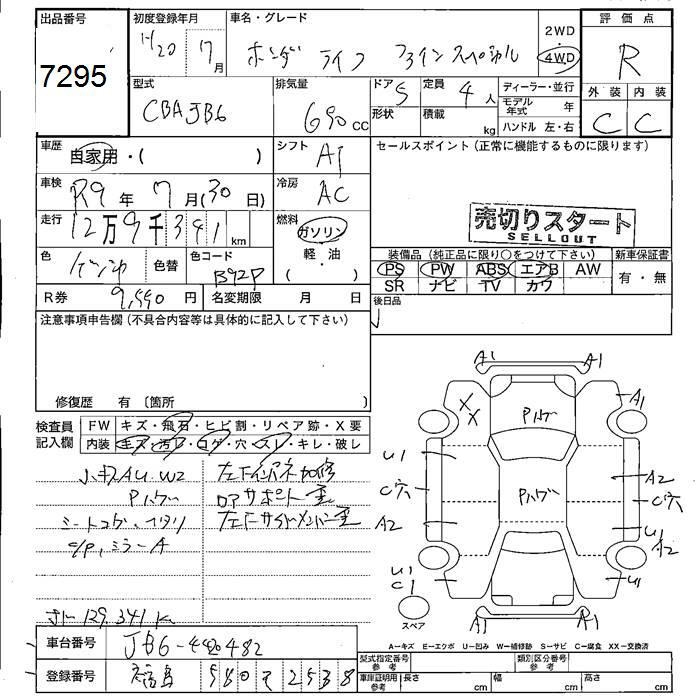 出品番号
7295
初度登録年月
H20 7月
車名・グレード
ホンダ ライフ ファインスペシャル
2WD
4WD
評価点
R
型式
CBAJB6
排気量
690cc
ドア 5
形状
定員 4人
積載 kg
ディーラー・並行
モデル年式 年
ハンドル 左・右
外装 内装
C C
車歴
自家用・( )
シフト AT
セールスポイント (正常に機能するものに限ります)
車検
R9年 7月(30日)
冷房 AC
走行
12万9千341km
燃料
ガソリン
軽・油
( )
売切りスタート
SELLOUT
色
色替
色コード
B92P
装備品 (純正品に限り○をつけて下さい)
新車保証書
PS PW ABS エアB AW
SR ナビ TV カワ
有・無
R券 9,990円
名変期限 月 日
後日品
注意事項申告欄 (不具合内容等は具体的に記入して下さい)
修復歴 有 〔箇所 〕
検査員記入欄
FW キズ・飛石・ヒビ割・リペア跡・X要
内装 キズ・汚レ・コゲ・穴・スレ・キレ・破レ
小キズAU W2
Pハゲ
シートコゲ、
c/p, ミラーA
左Fインアネ加修
ロアサポート歪
左Fサイドメンバー歪
メーター 129,341K
A1 A1
A1
XX
Pハゲ
U1
A2
C穴
Pハゲ
C穴
A2
U1
A2
U1
C1
U1
スペア
A1 A1
A−キズ E−エクボ U−凹み W−補修跡 S−サビ C−腐食 XX−交換済
車台番号
JB6-4420482
型式指定番号 参考
類別区分番号 参考
登録番号
福島 580 て 2538
車庫証明用 参考
長さ cm
幅 cm
高さ cm